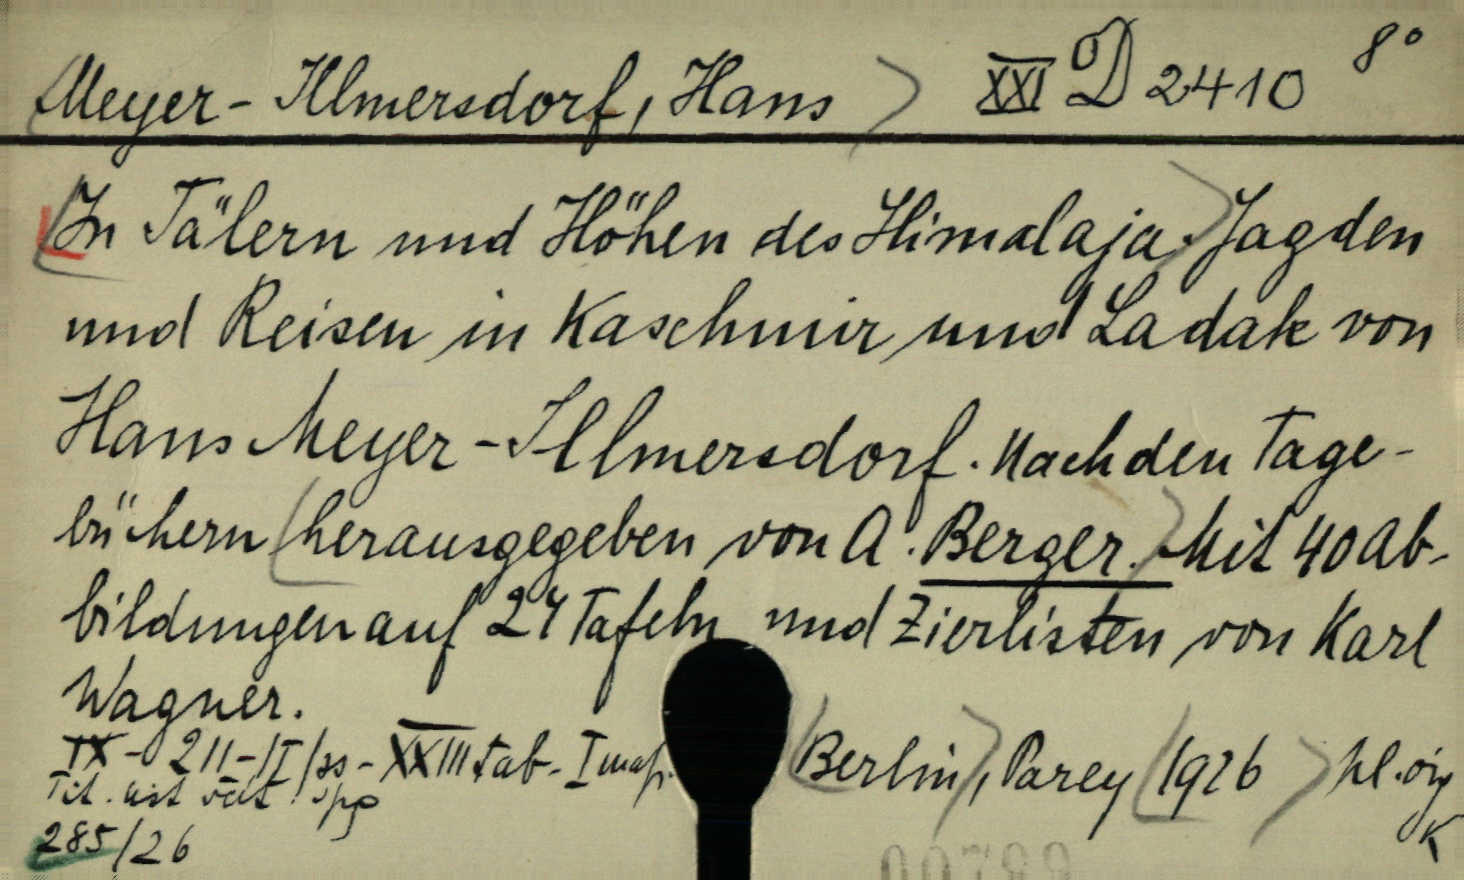 Meyer-Illmersdorf, Hans XXI D 2410 8°
In Tälern und Höhen des Himalaja. Jagden
und Reisen in Kaschmir und Ladak von
Hans Meyer-Illmersdorf. Nach den Tage-
büchern herausgegeben von A. Berger. Mit 40 Ab-
bildungen auf 24 Tafeln und Zierlisten von Karl
Wagner.
IX - 211 - /I/ ss - XXIII tab - I map. Berlin, Parey 1926
285/26 K